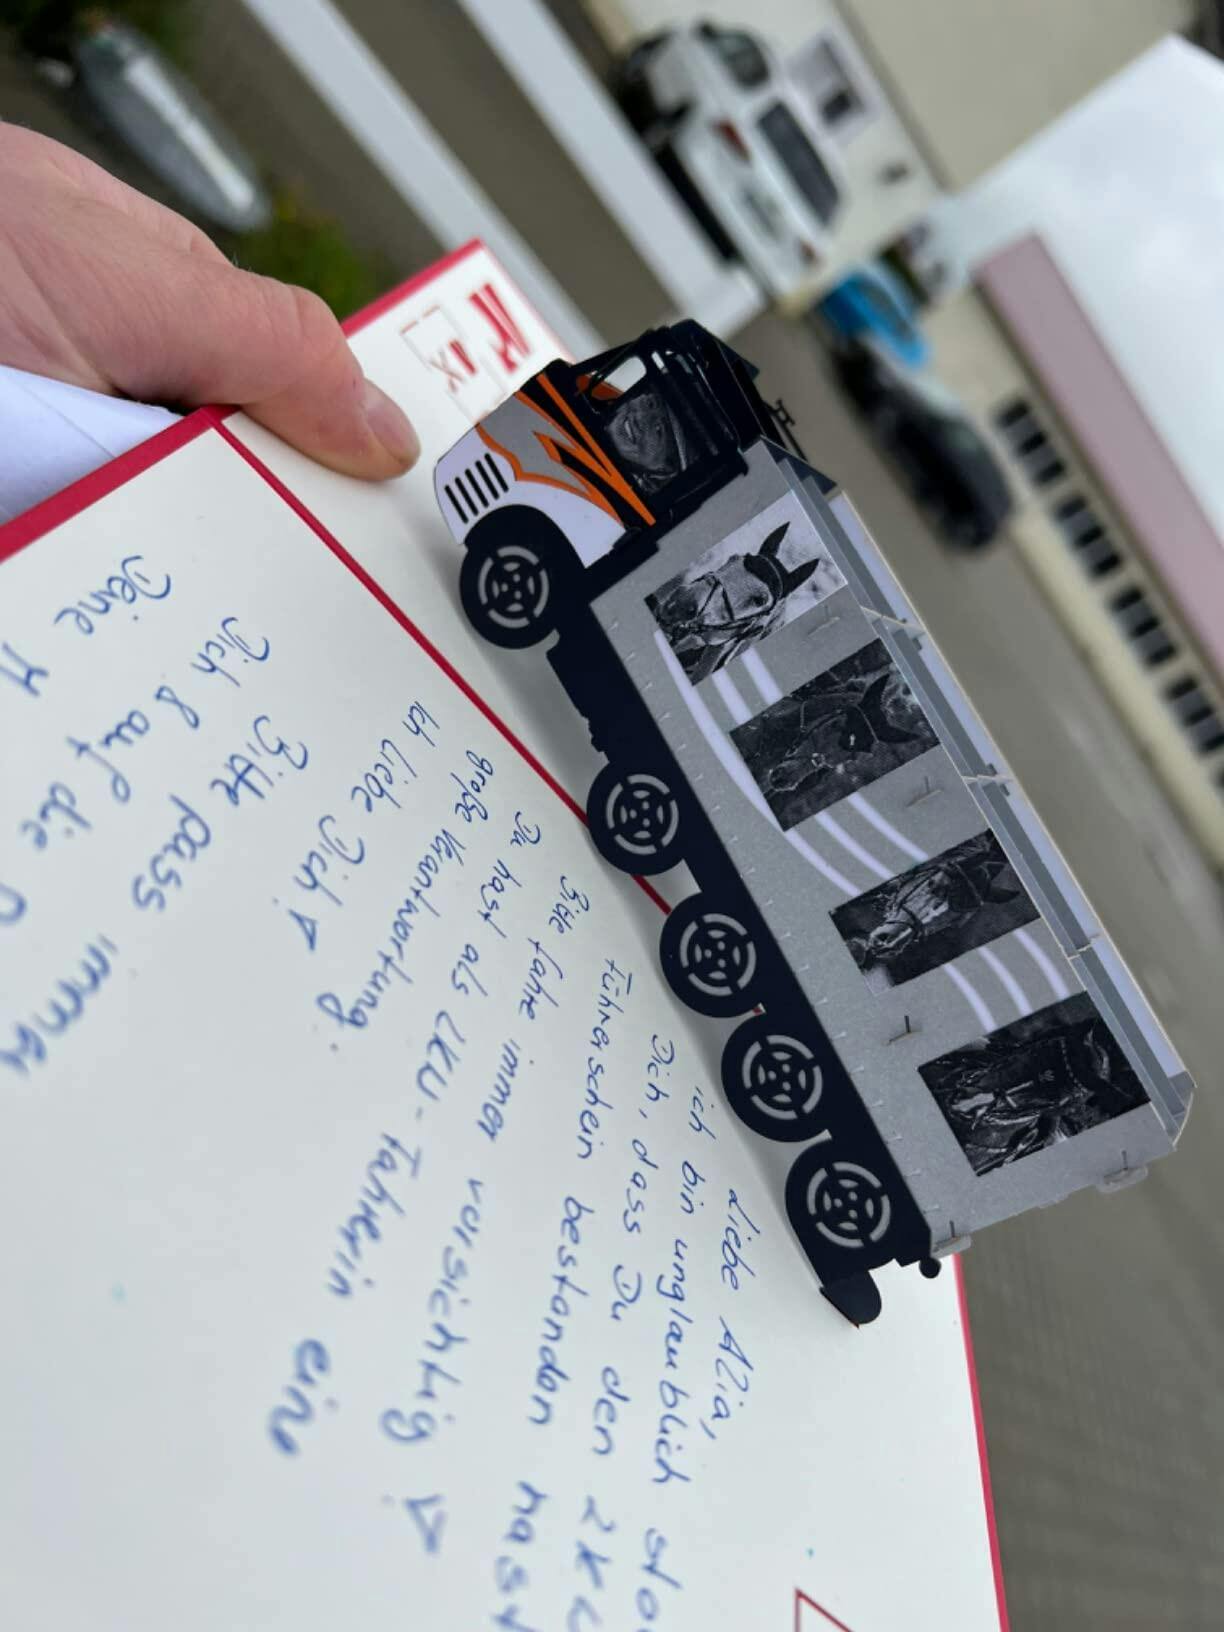 Liebe Alia,
ich bin unglaublich
Dich, dass Du den
Führerschein bestanden hast
Bitte fahre immer vorsichtig
Du hast als LKW-Fahrerin eine
große Verantwortung.
Ich liebe Dich!
Bitte pass immer
Dich & auf die
Deine